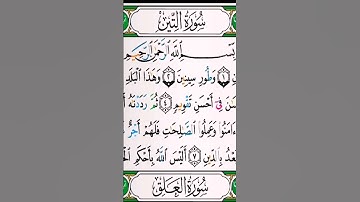 سُورَةُ التِّينِ
بِسْمِ ٱللَّهِ ٱلرَّحْمَٰنِ ٱلرَّحِيمِ
وَطُورِ سِينِينَ ٢ وَهَٰذَا ٱلْبَلَدِ
فِىٓ أَحْسَنِ تَقْوِيمٍ ٤ ثُمَّ رَدَدْنَٰهُ
ءَامَنُوا۟ وَعَمِلُوا۟ ٱلصَّٰلِحَٰتِ فَلَهُمْ أَجْرٌ
بَعْدُ بِٱلدِّينِ ٧ أَلَيْسَ ٱللَّهُ بِأَحْكَمِ
سُورَةُ العَلَقِ